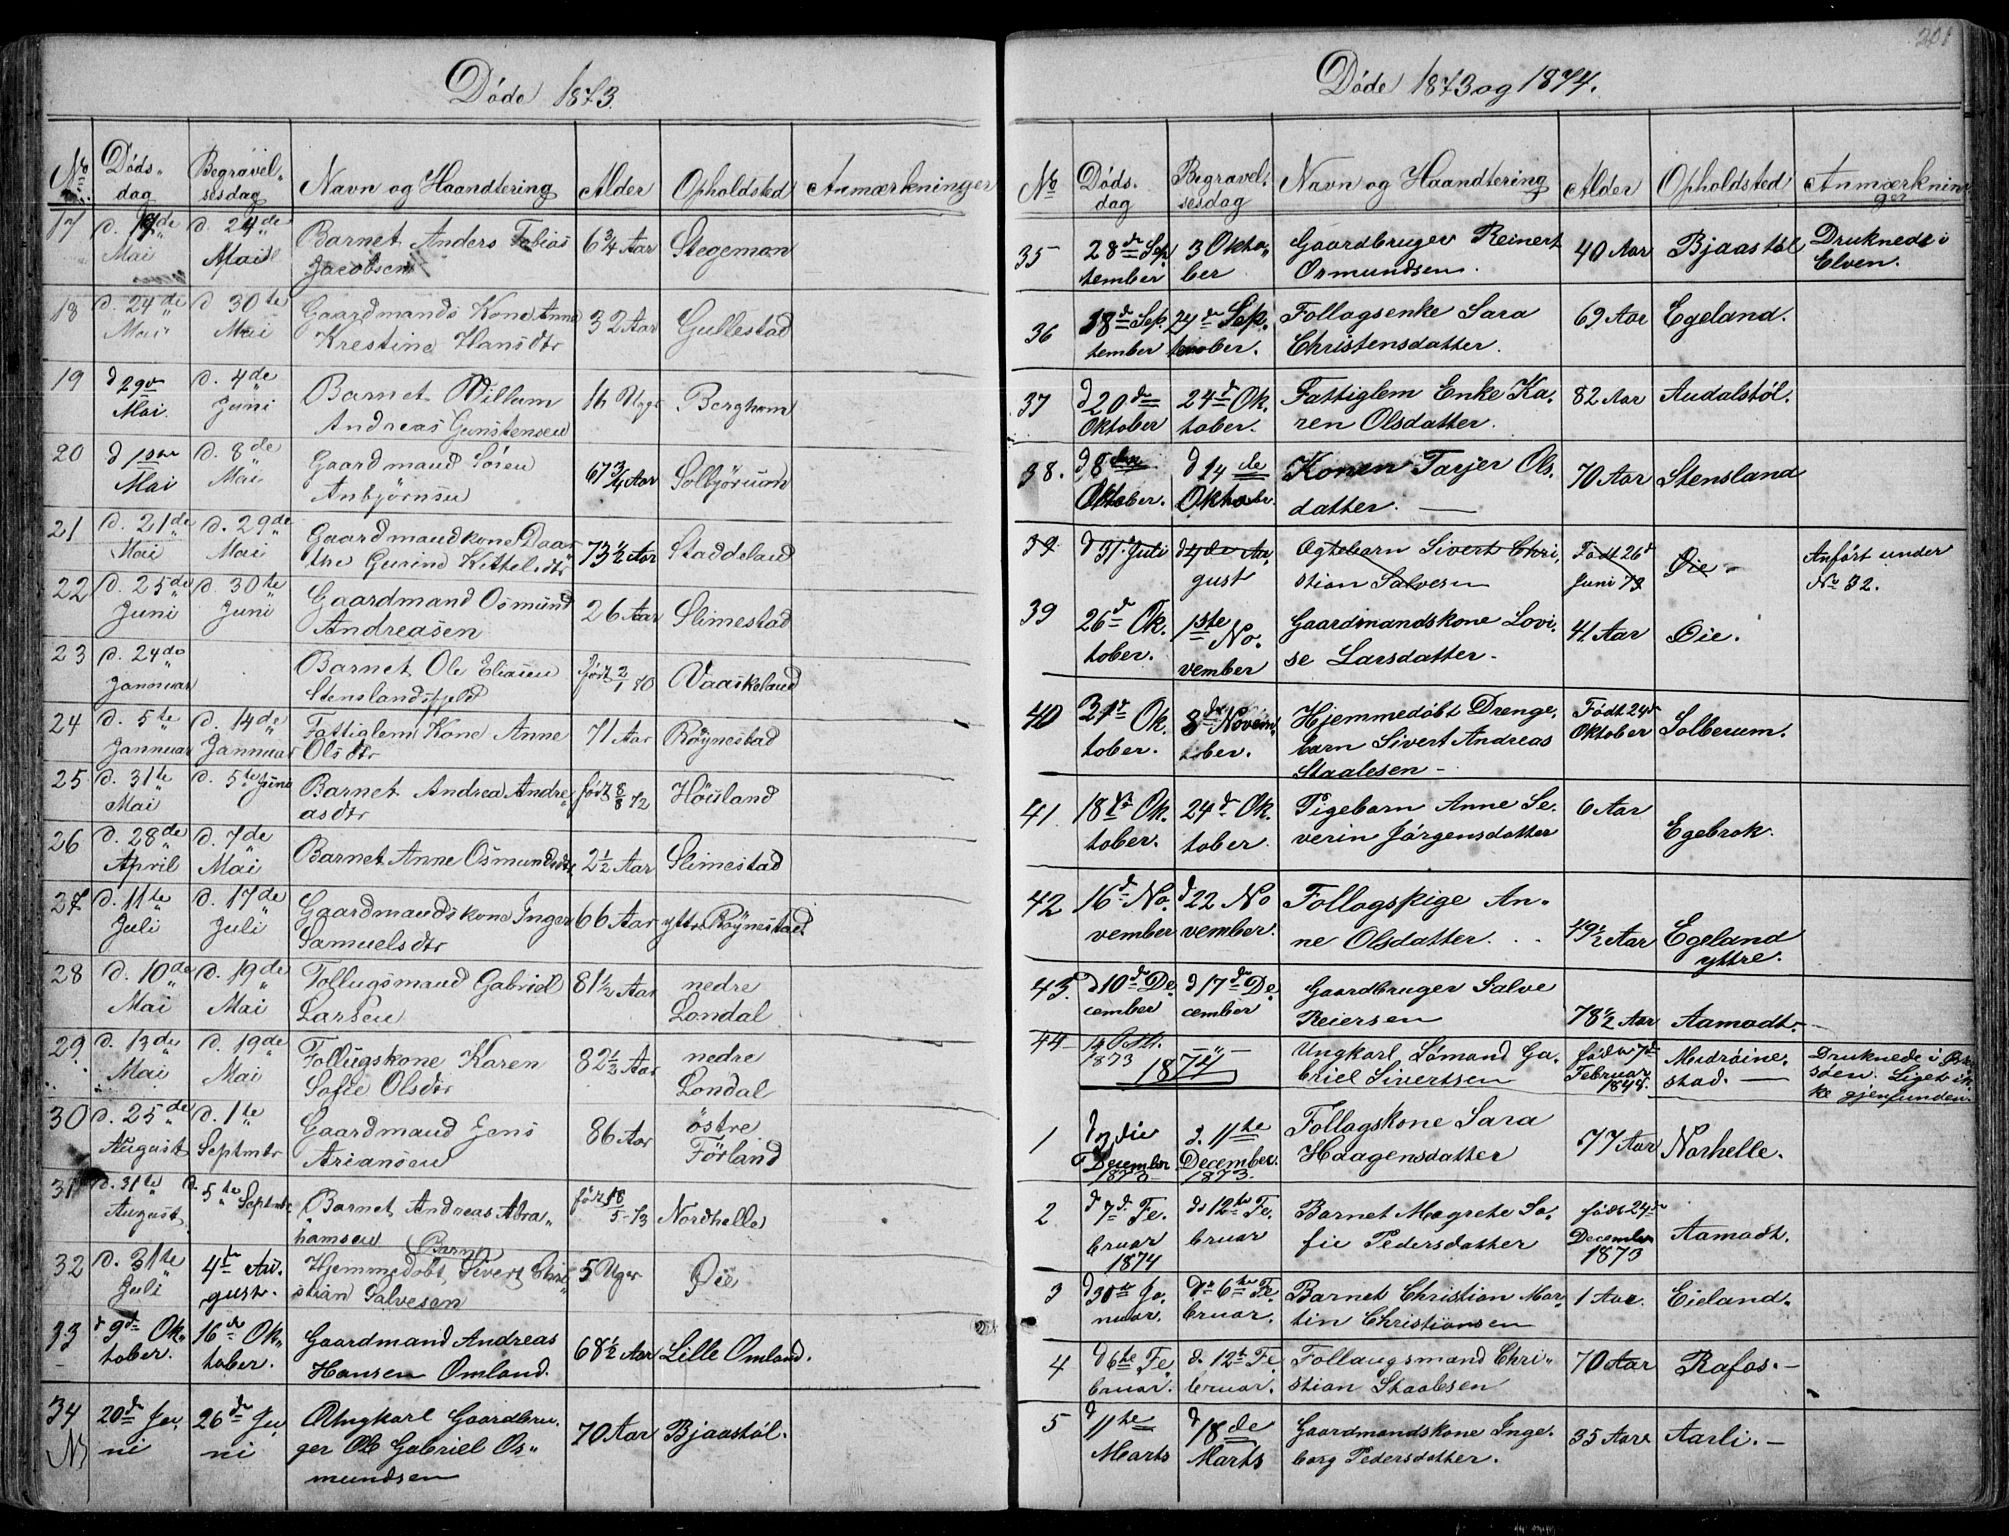 Døde 1873.
No Døds- dag Begravel- sesdag Navn og Haandtering Alder Opholdsted Anmærkninger
17 d. 19de Mai d. 24de Mai Barnet Anders Tobias Jacobsen 6 3/4 Aar Stegemon
18 d. 24de Mai d. 30te Mai Gaardmands Kone Anne Krestine Hansdtr 32 Aar Gullestad
19 d 29de Mai. d. 4de Juni Barnet Willum Andreas Gunstensen Uger Berghom
20 d Mai d. 8de Mai Gaardmand Sören Anbjørnsen 67 3/4 Aar Solbjörium
21 d. 21de Mai d. 29de Mai Gaardmandkone Daar- the Gurine Kittelsdtr 73 1/2 Aar Staddeland
22 d. 25de Juni d. 30te Juni Gaardmand Osmund Andreasen 26 Aar Slimestad
23 d. 24de Januar Barnet Ole Eliasen Stenslandsfjeld født 2/1 70 Vaaskeland
24 d. 5te Januar d. 14de Januar Fattiglem Kone Anne Olsdtr 71 Aar Röynestad
25 d. 31te Mai d. 5te Juni Barnet Andrea Andre- asdtr født 8/8 72 Höiland
26 d. 28de April d. 7de Mai Barnet Anne Osmundsdtr 2 1/2 Aar Slimestad
27 d. 11te Juli d. 17de Juli Gaardmandskone Inger Samuelsdtr 66 Aar yttre Röynestad.
28 d. 10de Mai d. 19de Mai Follugsmand Gabriel Larsen 81 1/2 Aar nedre Londal
29 d. 13de Mai d. 19de Mai Follugskone Karen Sofie Olsdtr 82 1/2 Aar nedre Londal
30 d. 25de August d. 1te Septmbr Gaardmand Jens Ariansen 86 Aar östre Förland
31 d. 31te August d. 5te Septmbr Barnet Andreas Abra- hamsen født 18/5-73 Nordhelle
32 d. 31te Juli 4de Au- gust. Hjemmedøbt Barn Sivert Chri- stian Salvesen 5 Uger Öie
33 d 9de Ok- tober. 16de Ok- tober. Gaardmand Andreas Hansen Omland. 68 1/2 Aar Lille Omland.
34 20de Ju- ni 26de Ju- ni Ungkarl Gaardbru- ger Ole Gabriel Os- mundsen 70 Aar Bjaastøl.
201
Døde 1873 og 1874.
No Døds- dag Begravel- sesdag Navn og Haandtering Alder Opholdsted Anmærknin- ger
35 28de Sep- tember 3 Okto- ber Gaardbruger Reinert Osmundsen. 40 Aar Bjaastøl Druknede i Elven.
36 18de Sep- tember 24de Sep- tember. Follagsenke Sara Christensdatter. 69 Aar Egeland.
37 d 20de Oktober 24de Ok- tober. Fattiglem Enke Ka- ren Olsdatter. 82 Aar Audalstøl.
38. d 8de Oktober. d 14de Oktober Konen Tarjer Ols- datter. 70 Aar Stensland
39 d 31 Juli d 4de Au- gust Ogtebarn Sivert Chri- stian Salvesen Født 26d Juni 73 Øie- Anført under No 32.
39 26de Ok- tober. 1ste No- vember Gaardmandskone Lovi- se Larsdatter- 41 Aar Øie.
40 31te Ok- tober. 8de Novem- ber. Hjemmedøbt Drenge- barn Sivert Andreas Staalesen- Født 24de Oktober Solberum.
41. 18de Ok- tober. 24de Ok- tober. Pigebarn Anne Se- verin Jørgensdatter 6 Aar Egebrok.
42 16de No- vember d 22 No vember. Follagspige An- ne Olsdatter. 49 1/2 Aar Egeland yttre.
43. d 10de De- cember d 17de De- cember Gaardbruger Salve Reiersen 78 1/2 Aar Aamodt.
44 1873 -"- Ungkarl Sømand Ga- briel Sivertsen født 7de Februar 1848. Medrøine- stad. Druknede i Øst- søen. Liget ik- ke gjenfunden.
1874
1 December 1873 d. 11te December. 1873. Follagskone Sara Haagensdatter 77 Aar Norhelle.
2 d 7de Fe- bruar 1874 d 12te Fe- bruar Barnet Magrete So- fie Pedersdatter født 24de December 1873 Aamodt.
3 d 30te Ja- nuar. d 6te Fe- bruar. Barnet Christian Mar- tin Christiansen 1 Aar. Eieland.
4 d 6te Fe- bruar. d. 12te Fe- bruar. Follaugsmand Chri- stian Staalesen 70 Aar Rafos.-
5 d 11te Marts d 18de Marts Gaardmandskone Inge- borg Pedersdatter. 35 Aar Aarli.-